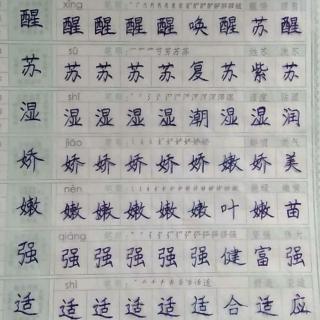 xǐng
醒 醒 醒 醒 唤 醒 苏 醒
sū
苏 苏 苏 苏 苏 复 苏 紫 苏
shī
湿 湿 湿 湿 湿 潮 湿 湿 润
jiāo
娇 娇 娇 娇 娇 娇 嫩 娇 美
nèn
嫩 嫩 嫩 嫩 嫩 嫩 叶 嫩 苗
qiáng
强 强 强 强 强 强 健 富 强
shì
适 适 适 适 适 适 合 适 应